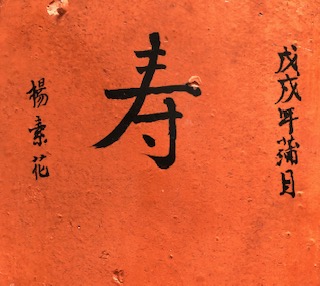 戊戌年蒲月
寿
楊素花